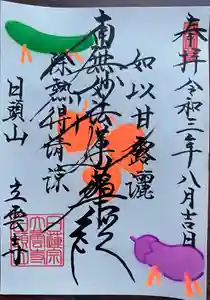 奉拝 令和二年八月吉日
如以甘露灑
南無妙法蓮華経
除熱得清涼
日頭山
立雲寺